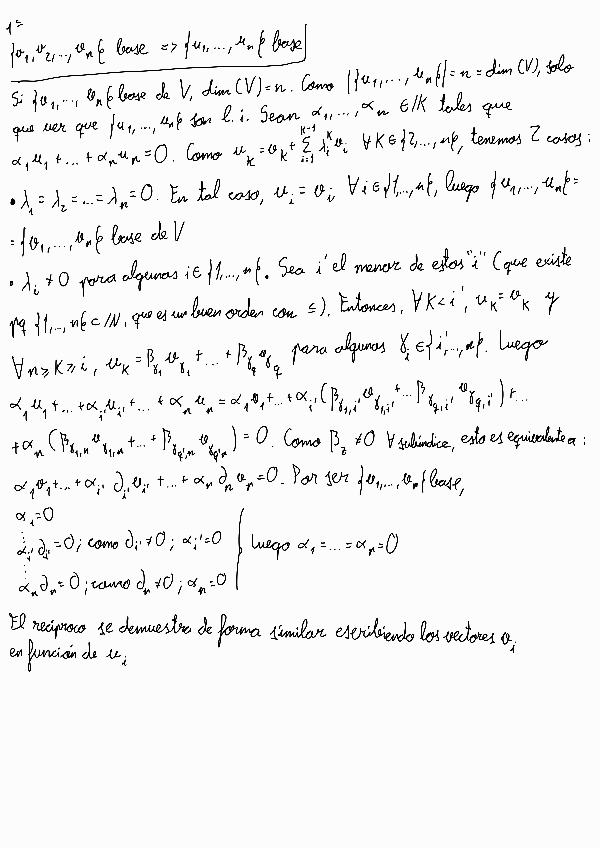 1º
{v₁,v₂,...,vₙ} base => {u₁,...,uₙ} base
Si {v₁,..., vₙ} base de V, dim(V)=n. Como |{u₁,...,uₙ}|=n=dim(V), solo
que ver que {u₁,...,uₙ} son l.i. Sean α₁,...,αₙ ∈ K tales que
α₁u₁+...+αₙuₙ=0. Como u_k=v_k+∑_{i=1}^{k-1} λ_i^k v_i ∀K∈{2,...,n}, tenemos 2 casos:
• λ₁=λ₂=...=λₙ=0. En tal caso, u_i=v_i ∀i∈{1,...,n}, luego {u₁,...,uₙ}=
={v₁,...,vₙ} base de V
• λ_i≠0 para algunos i∈{1,...,n}. Sea i' el menor de estos "i" (que existe
pq {1,...,n}⊂ℕ, que es un buen orden con ≤). Entonces, ∀K<i', u_k=v_k y
∀n≥K≥i, u_k=β_{γ₁}v_{γ₁}+...+β_{γ_q}v_{γ_q} para algunos γ_i∈{i',...,n}. Luego
α₁u₁+...+α_{i'}u_{i'}+...+αₙuₙ=α₁v₁+...+α_{i'}(β_{γ₁,i'}v_{γ₁,i'}+...β_{γ_q,i'}v_{γ_q,i'})+...
+αₙ(β_{γ₁,n}v_{γ₁,n}+...+β_{γ_q',n}v_{γ_q',n})=0. Como β_z≠0 ∀subíndice, esto es equivalente a:
α₁v₁+...+α_{i'}∂_{i'}v_{i'}+...+αₙ∂ₙvₙ=0. Por ser {v₁,...,vₙ} base,
α₁=0
α_{i'}∂_{i'}=0; como ∂_{i'}≠0; α_{i'}=0 luego α₁=...=αₙ=0
αₙ∂ₙ=0; como ∂ₙ≠0; αₙ=0
El recíproco se demuestra de forma similar escribiendo los vectores v_i
en función de u_i